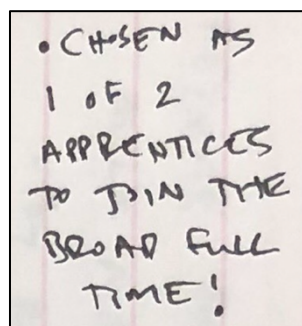 • CHOSEN AS
1 OF 2
APPRENTICES
TO JOIN THE
BROAD FULL
TIME!